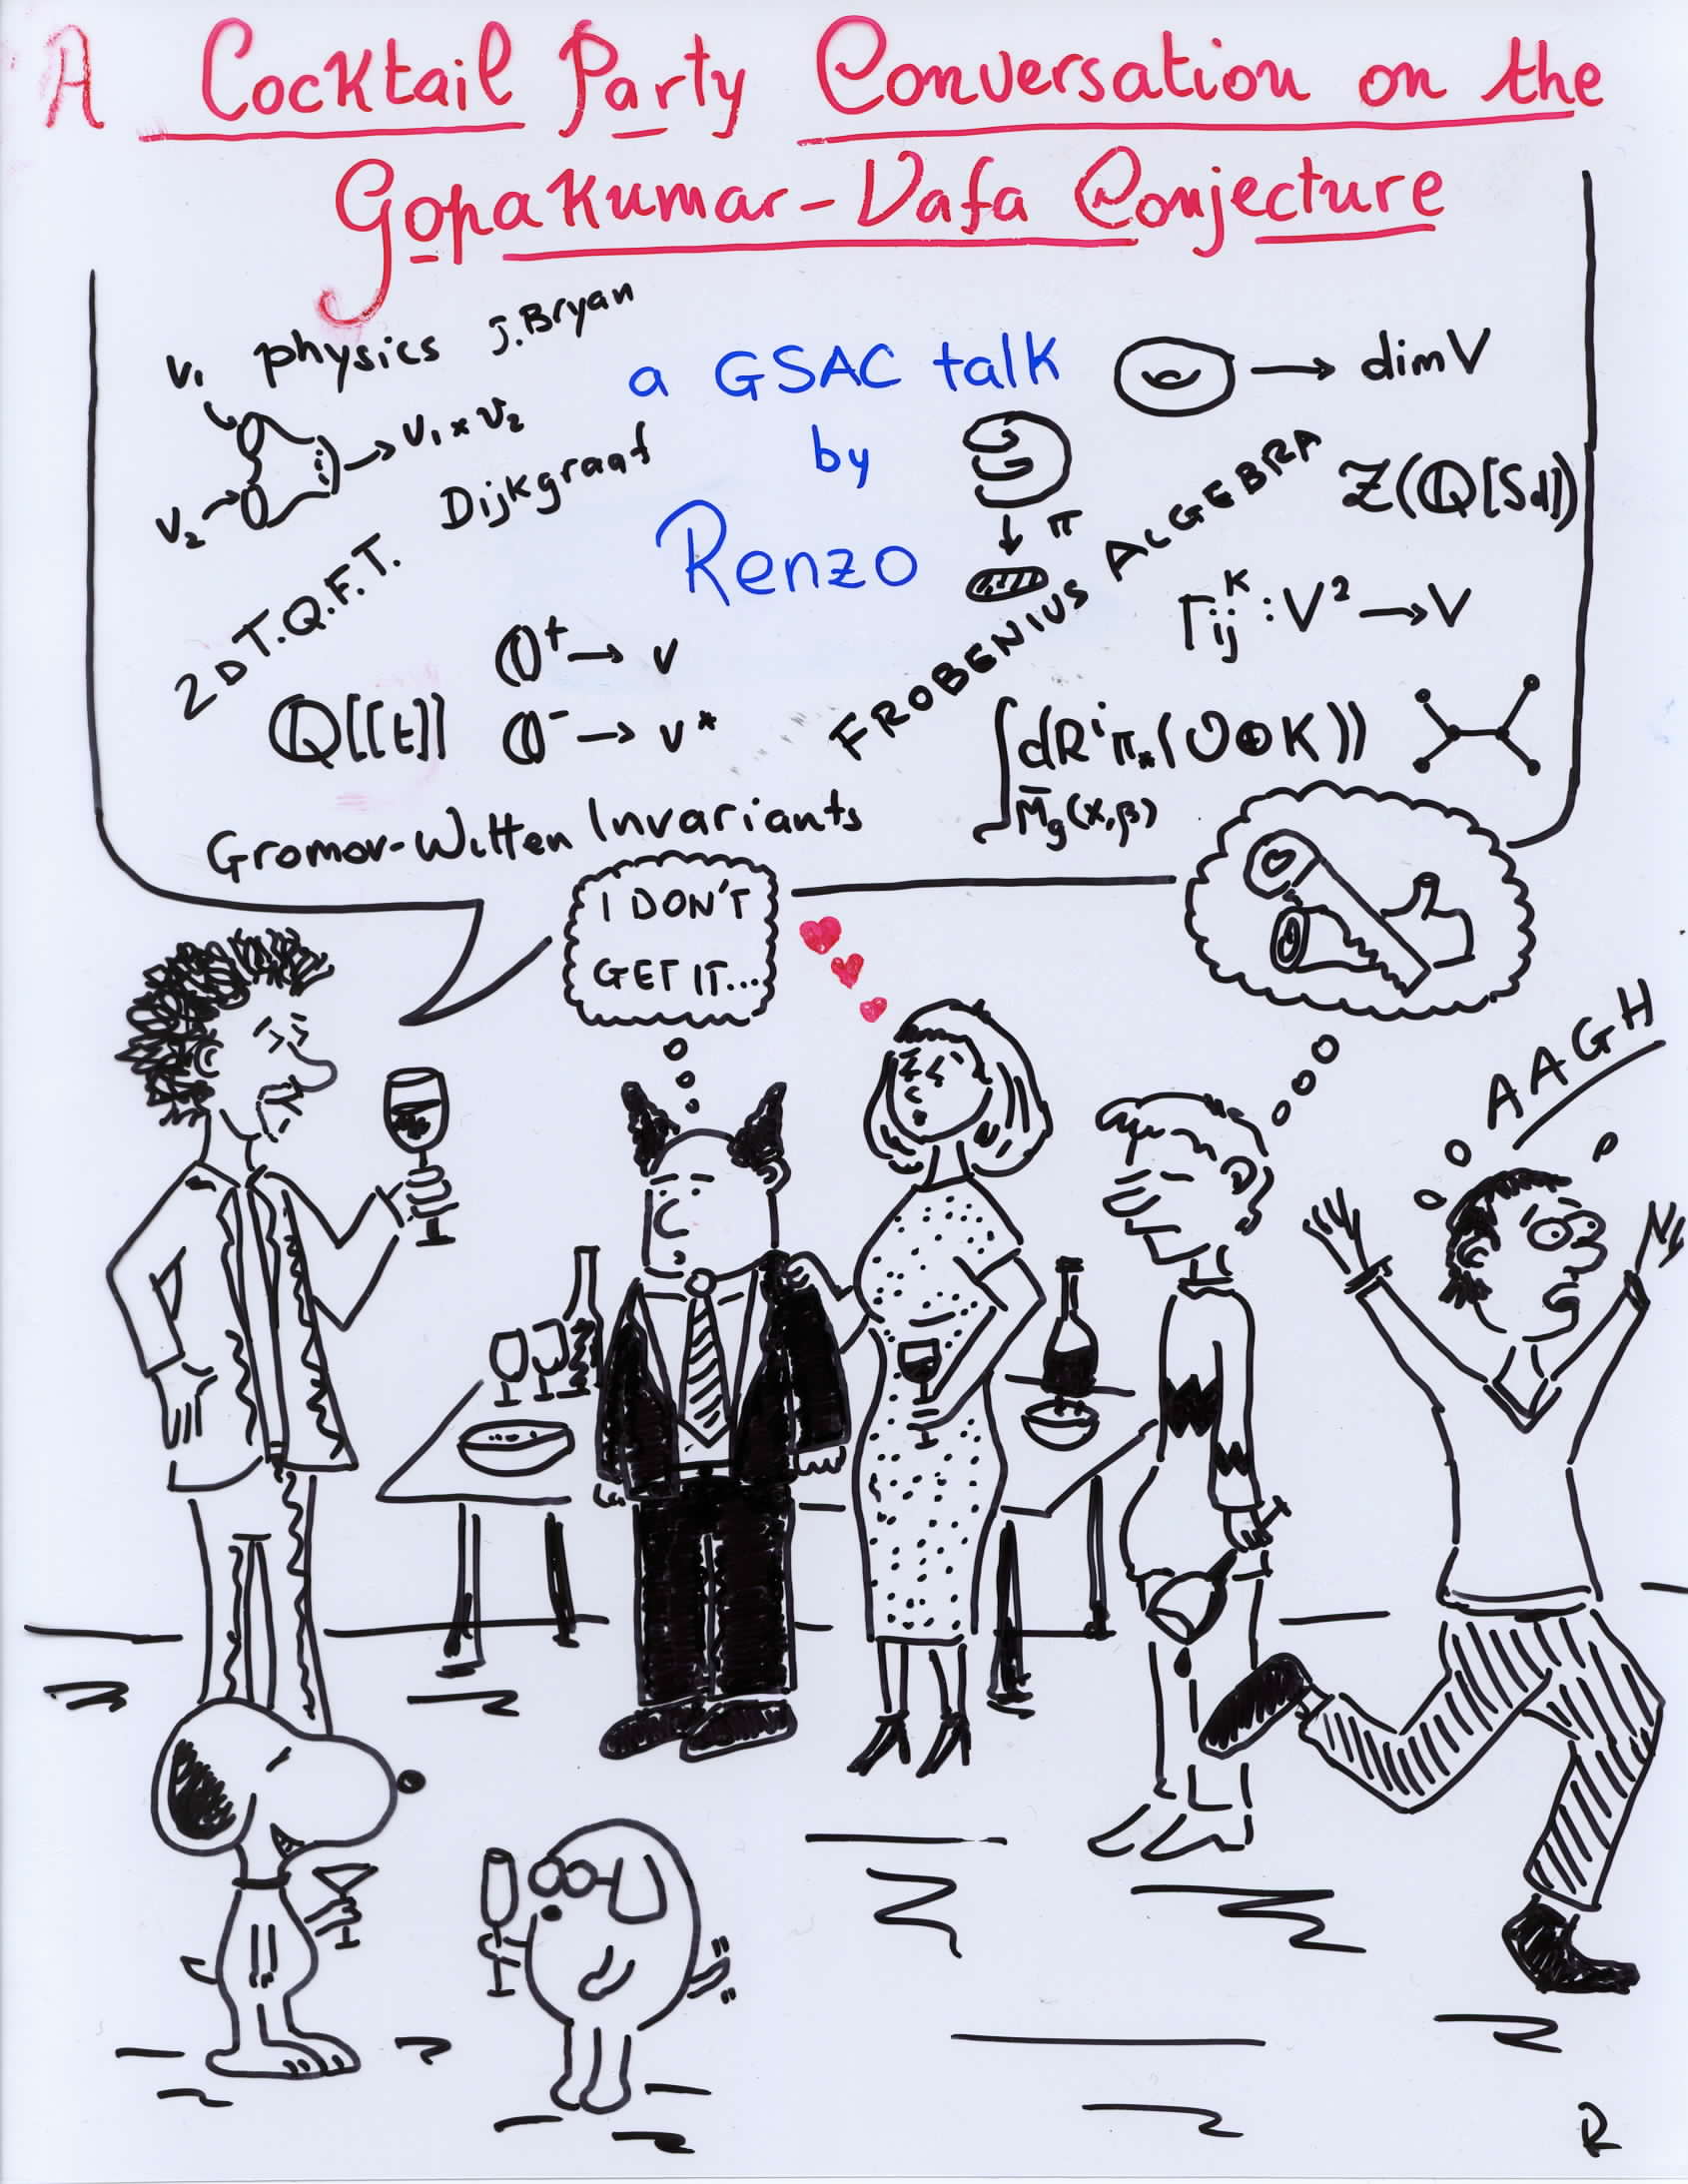 A Cocktail Party Conversation on the
Gopakumar-Vafa Conjecture
V₁ physics J. Bryan
a GSAC talk
by
Renzo
→ dim V
→ V₁ × V₂
V₂
Dijkgraaf
2D T.Q.F.T.
π
FROBENIUS ALGEBRA
Z(Q[Sd])
Γᵢⱼᴷ : V² → V
+ → V
Q[[t]]
- → V*
∫ dRⁱπ*(O⊕K))
M̄g(X,β)
Gromov-Witten Invariants
I DON'T
GET IT...
AAGH
R